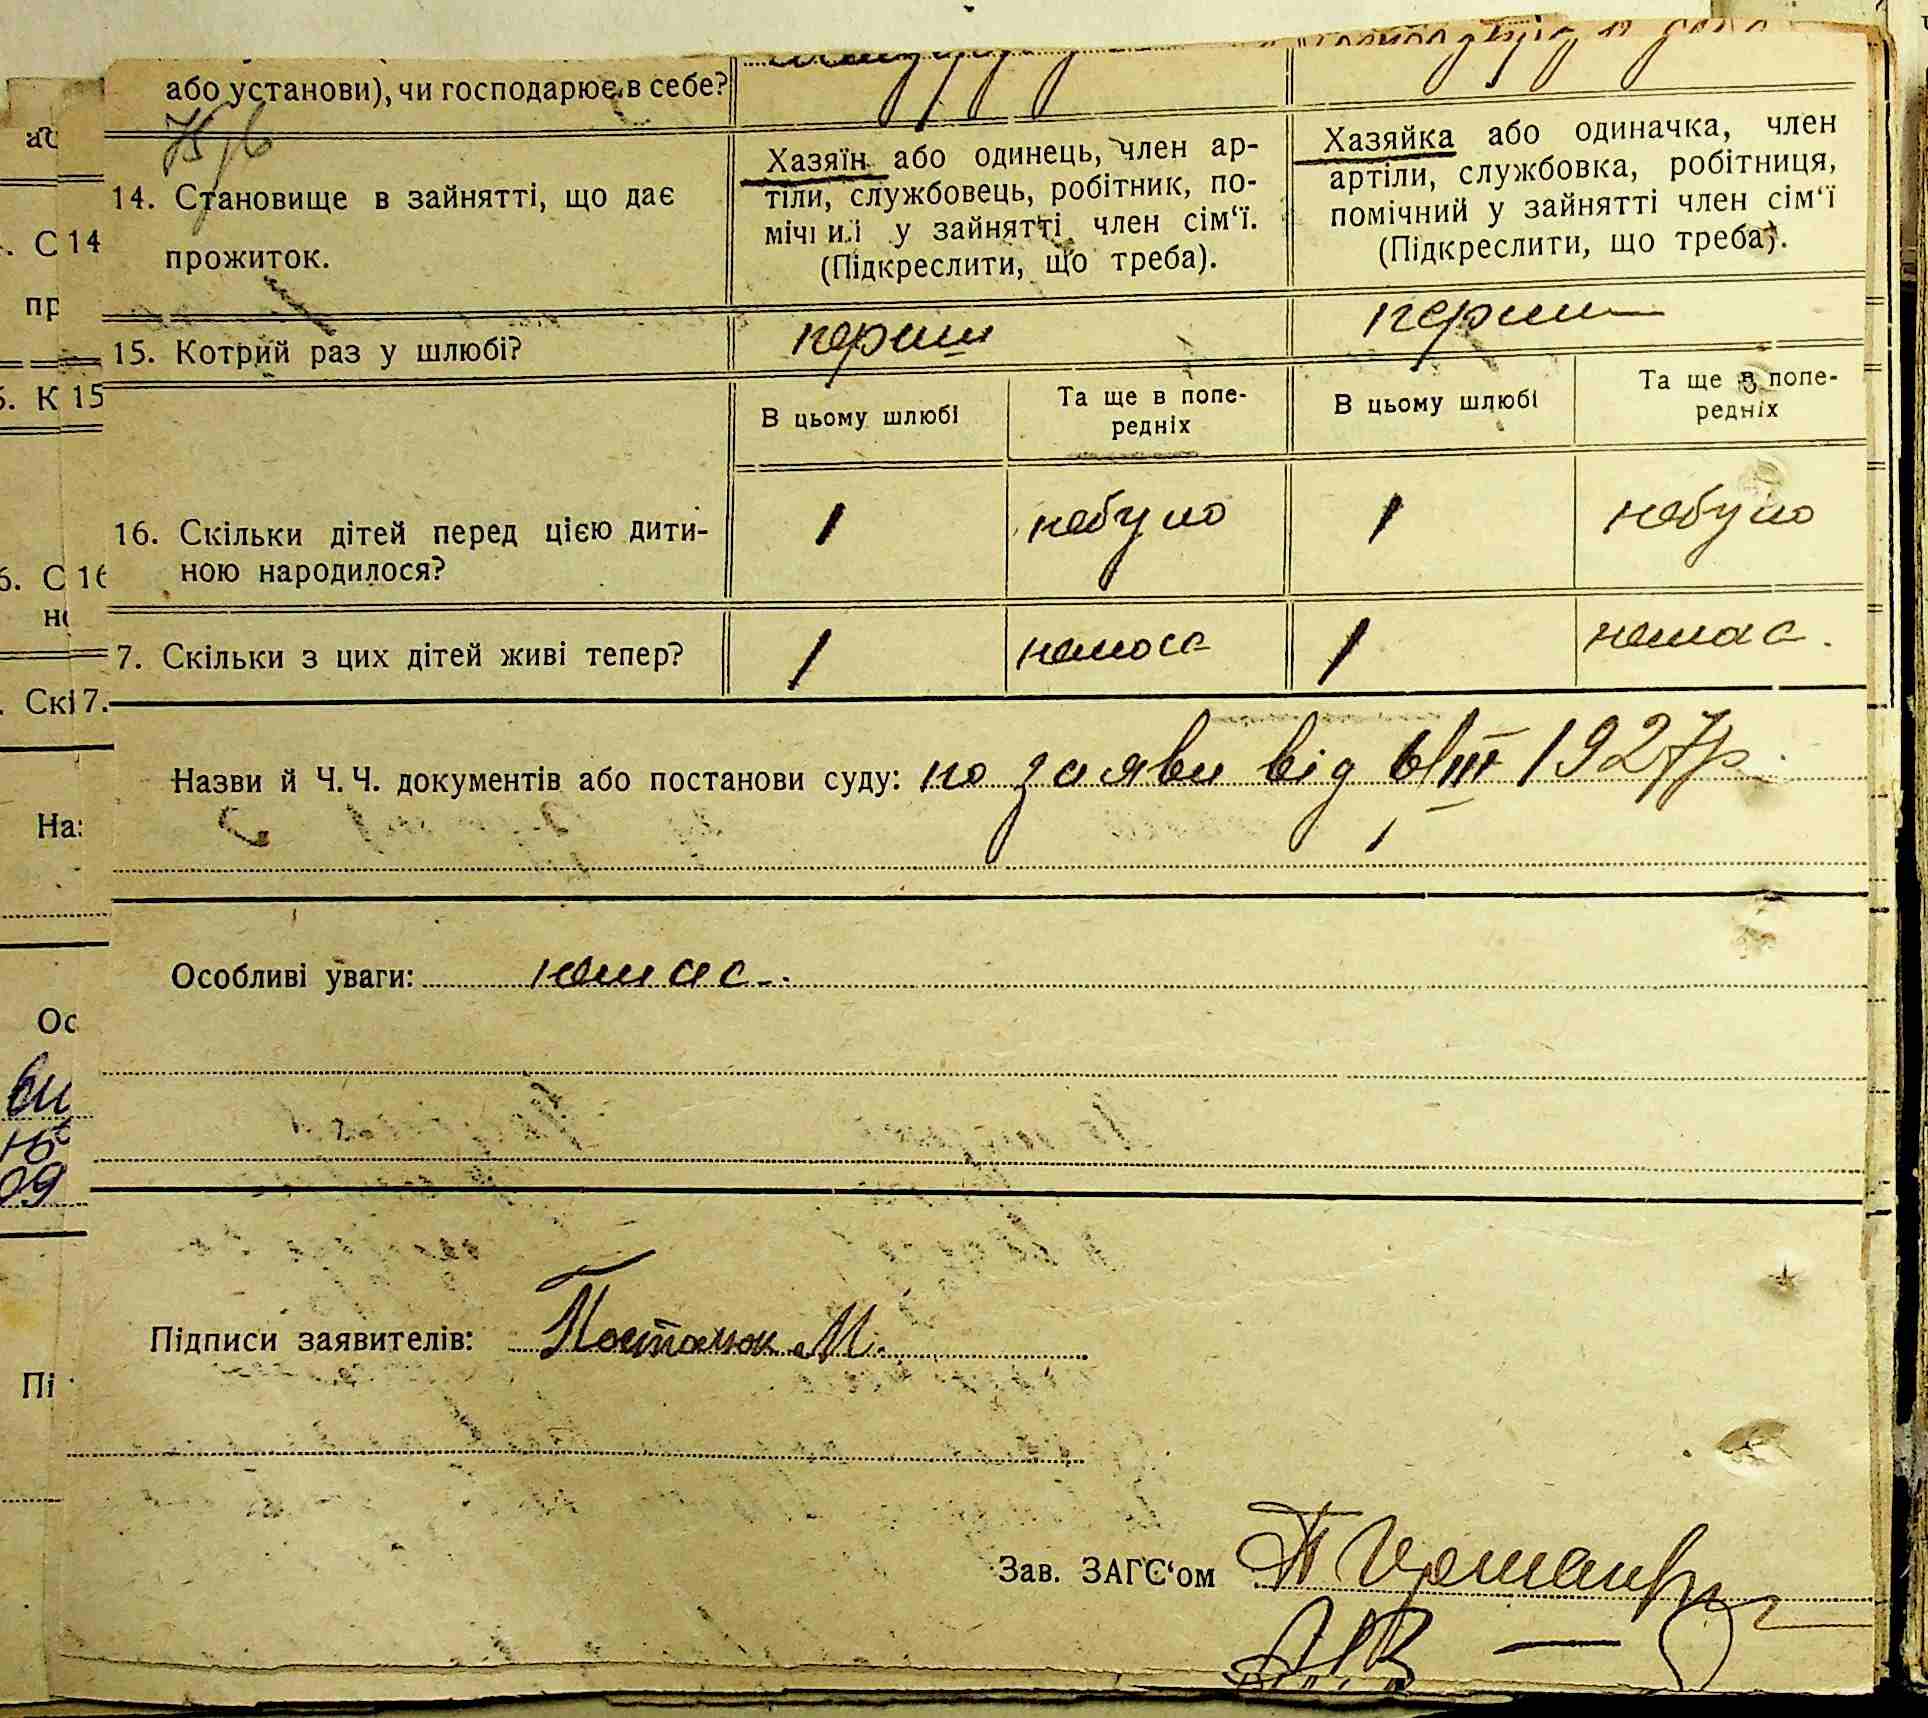 або установи), чи господарює в себе?
14. Становище в зайнятті, що дає
прожиток.
Хазяїн або одинець, член ар-
тіли, службовець, робітник, по-
мічний у зайнятті член сім'ї.
(Підкреслити, що треба).
Хазяйка або одиначка, член
артіли, службовка, робітниця,
помічний у зайнятті член сім'ї
(Підкреслити, що треба).
15. Котрий раз у шлюбі?
перший
перший
В цьому шлюбі
Та ще в попе-
редніх
В цьому шлюбі
Та ще в попе-
редніх
16. Скільки дітей перед цією дити-
ною народилося?
1
небуло
1
небуло
7. Скільки з цих дітей живі тепер?
1
немає
1
немає.
Назви й Ч. Ч. документів або постанови суду: по заяви від 6/III 1927р.
Особливі уваги: немає.
Підписи заявителів: Постолюк М.
Зав. ЗАГС'ом